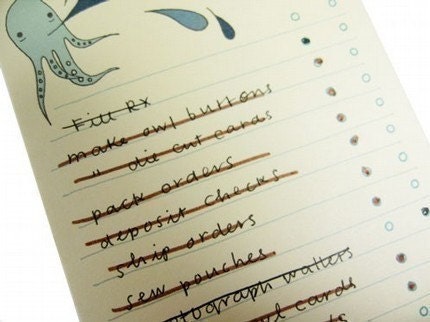 Fill Rx
make owl buttons
" die cut cards
pack orders
deposit checks
ship orders
sew pouches
photograph wallets
cards